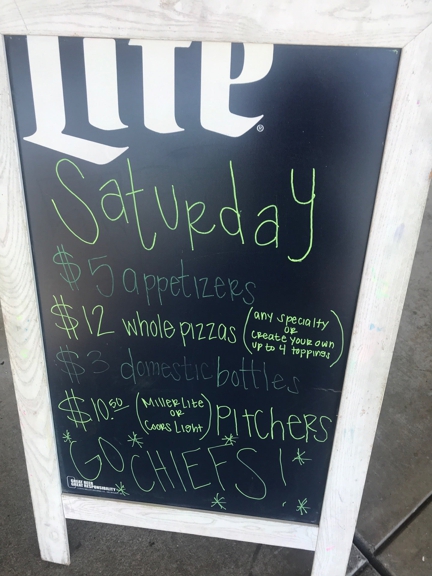 Lite®
Saturday
$5 appetizers
$12 whole pizzas (any specialty
OR
create your own
up to 4 toppings)
$3 domestic bottles
$10.50 (Miller Lite
OR
Coors Light) Pitchers
GO CHIEFS!
GREAT BEER
GREAT RESPONSIBILITY